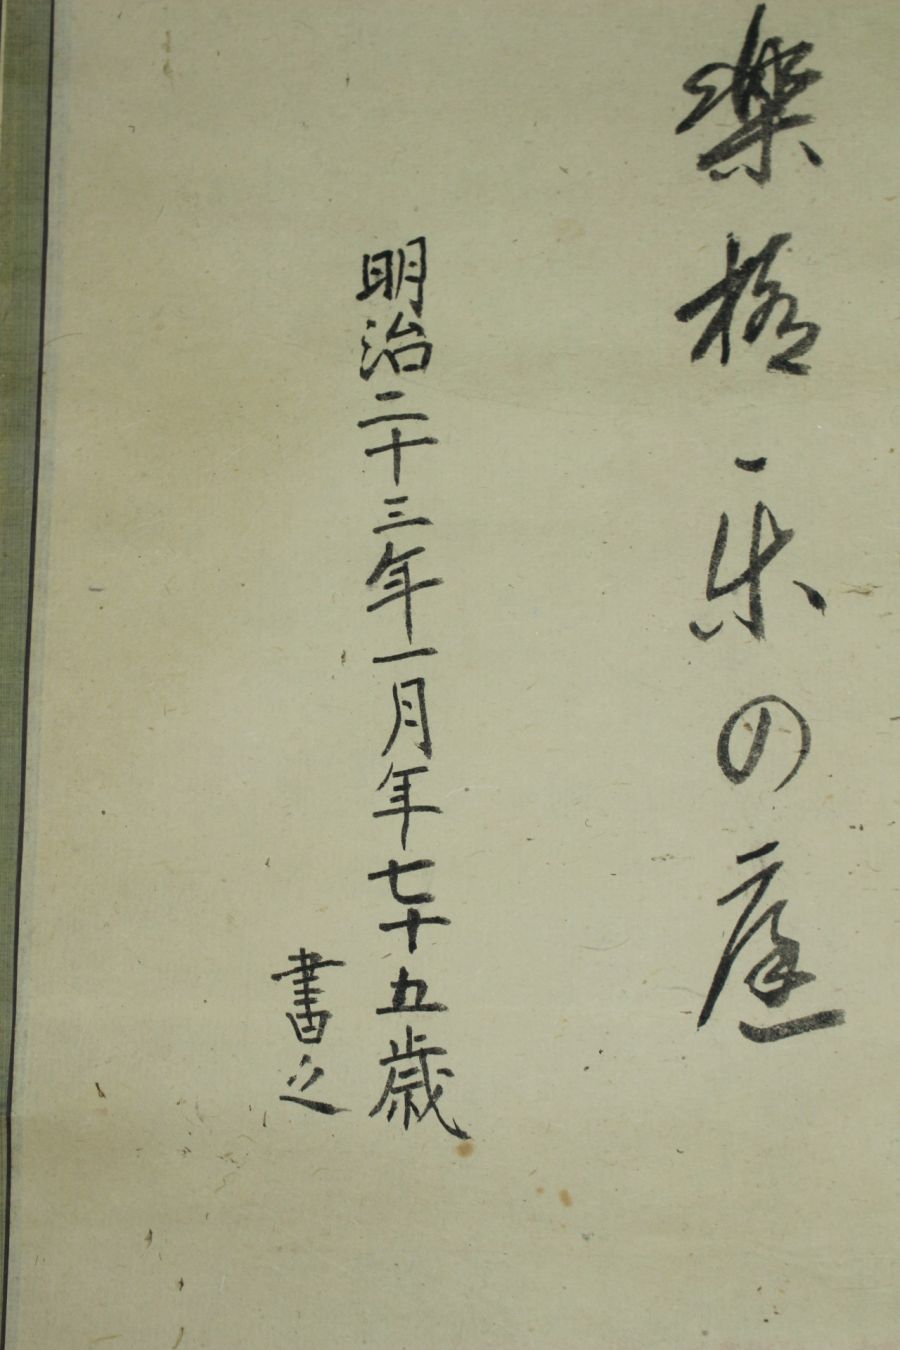 楽
の庭
明治二十三年一月年七十五歳
書之